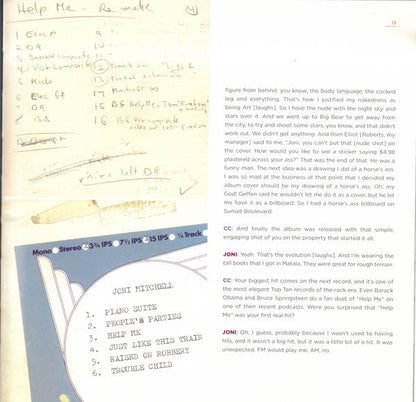 Help Me - Remake
4
1
9
2
10
3
4
12
5
13
6
14
7
15 BG Help Me, Tom
8
16 BG
Mono Stereo 3¾ IPS 7½ IPS 15 IPS ¼ Track
JONI MITCHELL
1. PIANO SUITE
2. PEOPLE'S PARTIES
3. HELP ME
4. JUST LIKE THIS TRAIN
5. RAISED ON ROBBERY
6. TROUBLE CHILD
figure from behind, you know, the body language, the cocked
leg and everything. That's how I justified my nakedness as
being Art [laughs]. So I have the nude with the night sky and
stars over it. And we went up to Big Bear to get away from
the city, to try and shoot some stars, you know, and that didn't
work out. We didn't get anything. And then Elliot [Roberts, my
manager] said to me, "Joni, you can't put that [nude shot] on
the cover. How would you like to see a sticker saying $4.98
plastered across your ass?" That was the end of that. He was a
funny man. The next idea was a drawing I did of a horse's ass.
I was so mad at the business at that point that I decided my
album cover should be my drawing of a horse's ass. Oh, my
God! Geffen said he wouldn't let me do it as a cover, but he let
me have it as a billboard. So I had a horse's ass billboard on
Sunset Boulevard.
CC: And finally the album was released with that simple,
engaging shot of you on the property that started it all.
JONI: Yeah. That's the evolution [laughs]. And I'm wearing the
tall boots that I got in Matala. They were great for rough terrain.
CC: Your biggest hit comes on the next record, and it's one of
the most elegant Top Ten records of the rock era. Even Barack
Obama and Bruce Springsteen do a fan duet of "Help Me" on
one of their recent podcasts. Were you surprised that "Help
Me" was your first real hit?
JONI: Oh, I guess, probably because I wasn't used to having
hits, and it wasn't a big hit, but it was a little bit of a hit. It was
unexpected. FM would play me. AM, no.